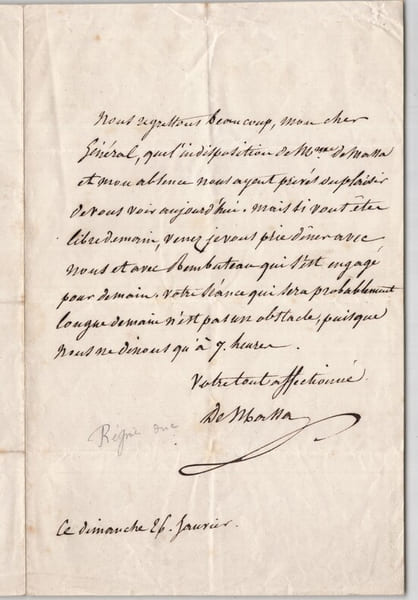 Nous regrettons beaucoup, mon cher
Général, que l'indisposition de Mme de Massa
et mon absence nous ayent privés du plaisir
de vous voir aujourd'hui. mais si vous êtes
libre demain, venez je vous prie dîner avec
nous et avec Rambuteau qui s'est engagé
pour demain. votre séance qui sera probablement
longue demain n'est pas un obstacle, puisque
nous ne dinons qu'à 7 heures.
Votre tout affectionné
De Massa
duc
Ce dimanche 26. Janvier.